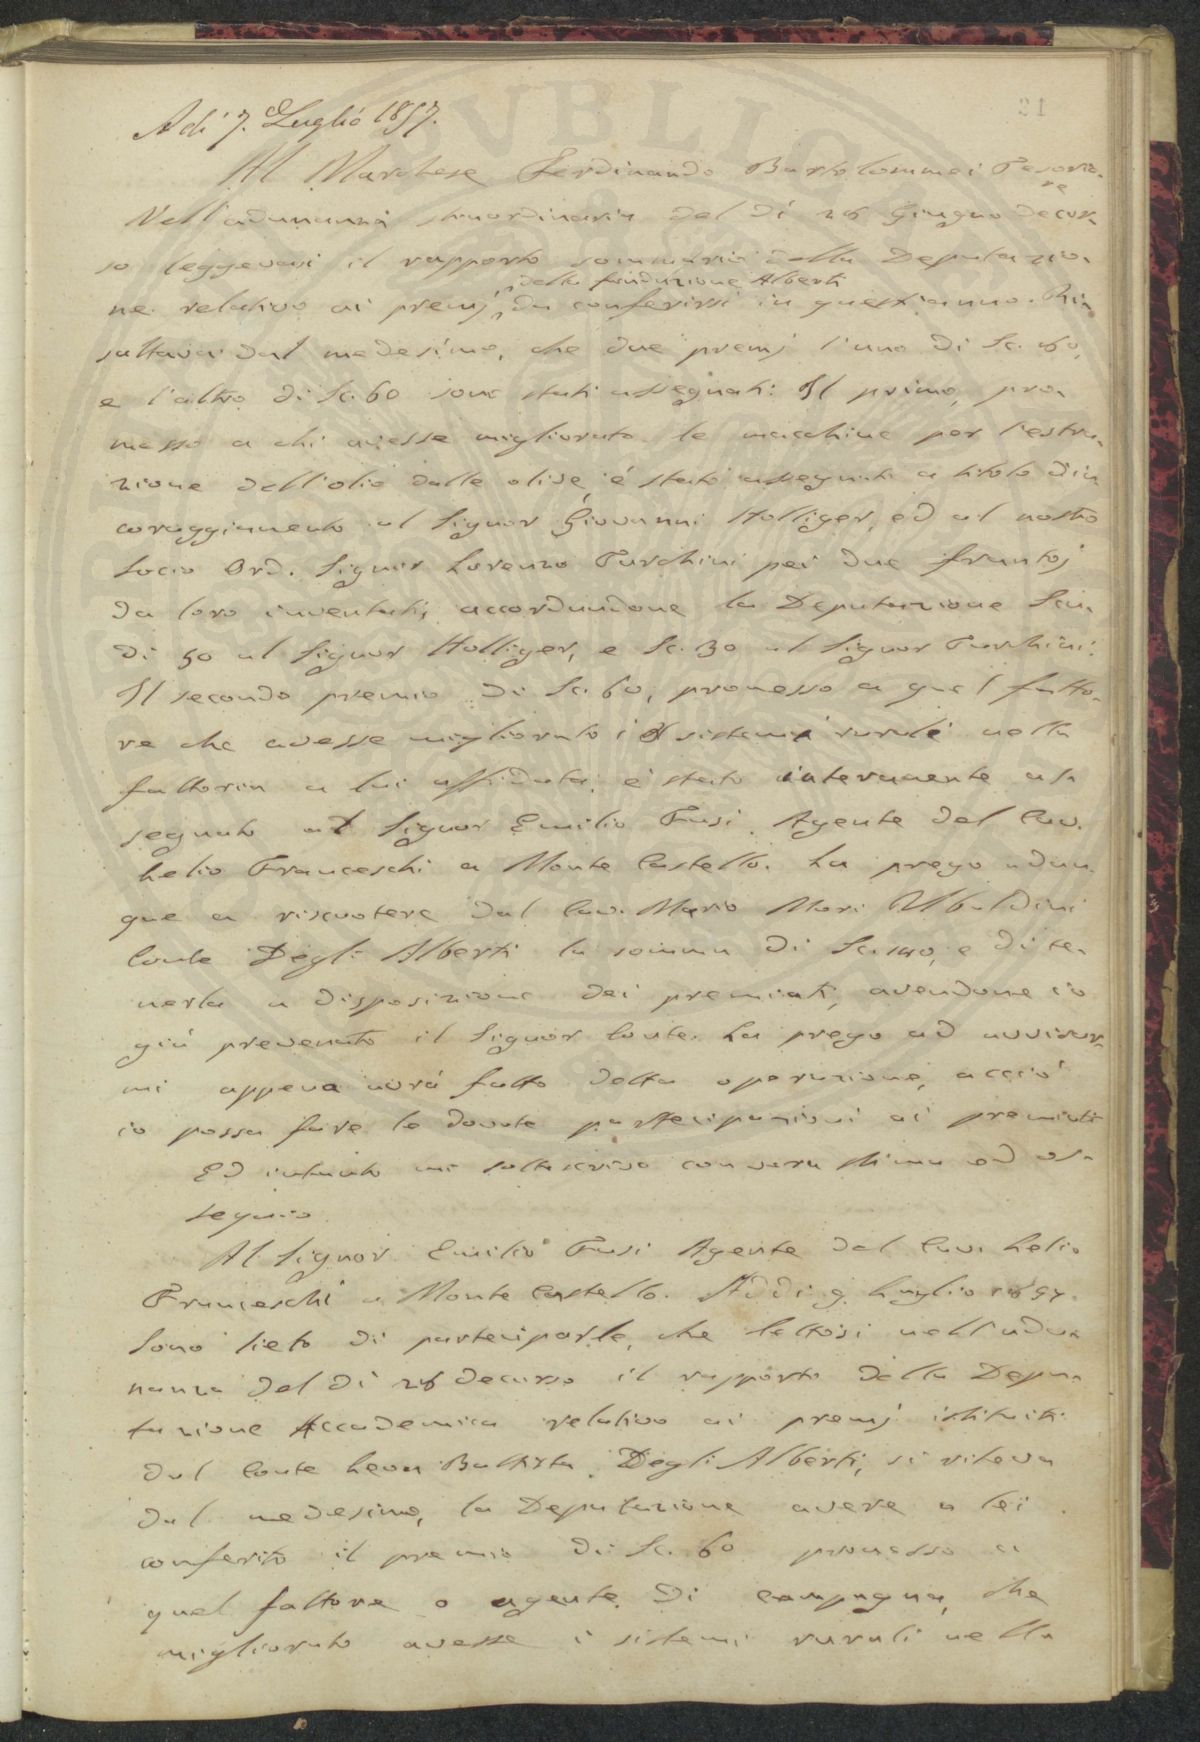 21
Adí 7. Luglio 1857.
Al Marchese Ferdinando Bartolommei Tesorie-
re
Nell'adunanza straordinaria del dí 28 Giugno decor-
so leggevasi il rapporto sommario della Deputazio-
della fondazione Alberti
ne relativo ai premj da conferirsi in quest'anno. Ri-
sultava dal medesimo, che due premj l'uno di Sc. 80,
e l'altro di Sc. 60 sono stati assegnati: Il primo, pro-
messo a chi avesse migliorato le macchine per l'estra-
zione dell'olio dalle olive, é stato assegnato a titolo d'in
coraggiamento al Signor Giovanni Holliger, ed al nostro
Socio Ord. Signor Lorenzo Turchini pei due frantoj
da loro inventati, accordandone la Deputazione Scu-
di 50 al Signor Holliger, e Sc. 30 al Signor Turchini.
Il secondo premio di Sc. 60, promesso a quel fatto-
re che avesse migliorato i sistemi rurali nella
fattoria a lui affidata, é stato interamente as-
segnato al Signor Emilio Fusi Agente del Cav.
Lelio Franceschi a Monte Castello. La prego adun-
que a riscuotere dal Cav. Mario Mori Ubaldini
Conte Degli Alberti la somma di Sc. 140, e di te-
nerla a disposizione dei premiati, avendone io
giá prevenuto il Signor Conte. La prego ad avvisar-
mi appena avrá fatto detta operazione, acció
io possa fare le dovute partecipazioni ai premiati
Ed intanto mi sottoscrivo con vera stima ed os-
sequio
Al Signor Emilio Fusi Agente del Cav. Lelio
Franceschi a Monte Castello. Addi 9. Luglio 1857.
Sono lieto di parteciparle, che lettosi nell'adu-
nanza del dí 28 decorso il rapporto della Depu-
tazione Accademica relativo ai premj istituiti
dal Conte Leon Battista Degli Alberti, si rileva
dal medesimo, la Deputazione avere a lei
conferito il premio di Sc. 60 promesso a
quel fattore o agente di campagna, che
migliorato avesse i sistemi rurali nella